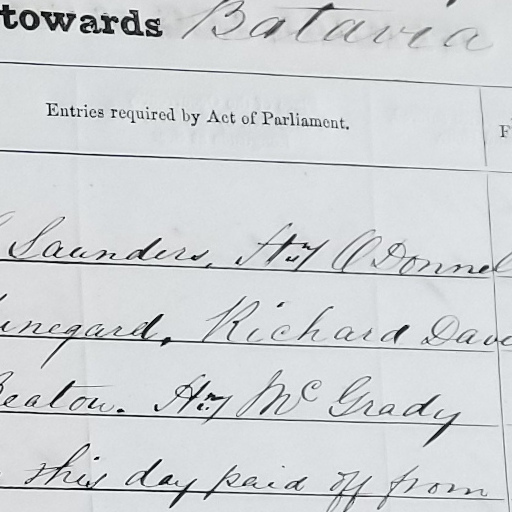 towards Batavia
Entries required by Act of Parliament.
F
Saunders, Hry O'Donnel
inegard, Richard Dav
Beaton. Hry McGrady
this day paid off from